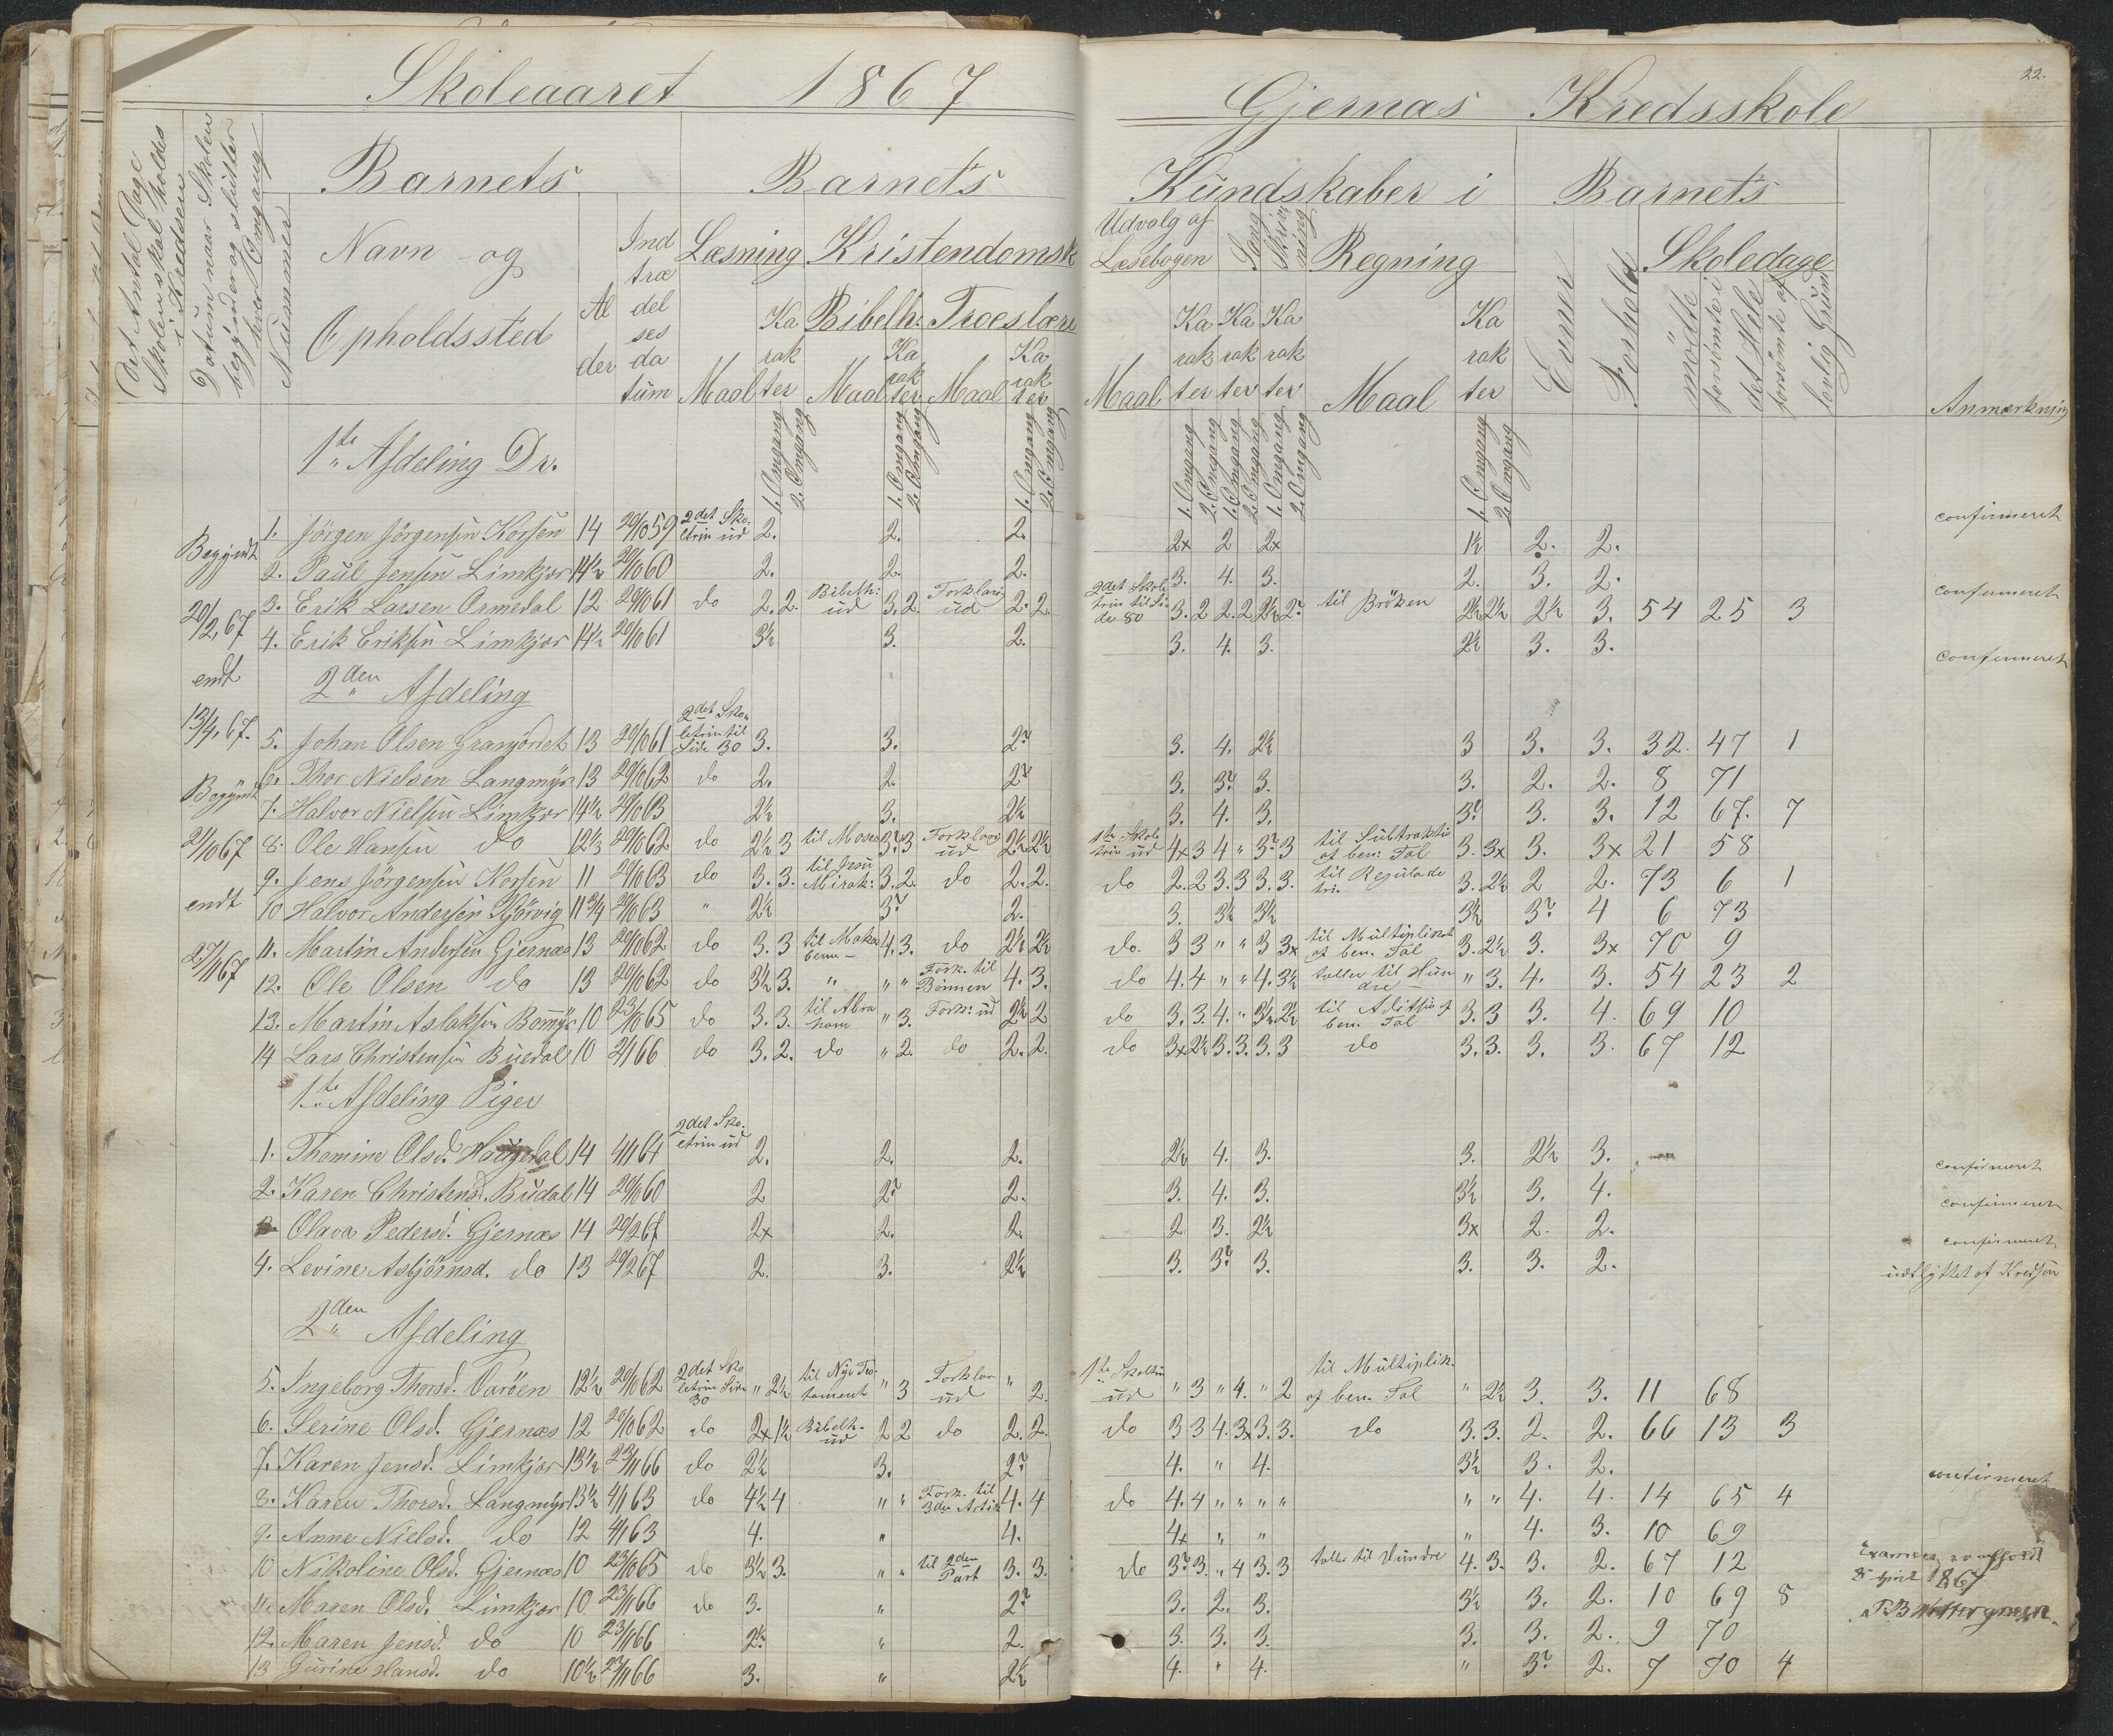 Skoleaaret 1867
Gjernæs Kredsskole
22.
Det Antal Dage
Skolen skal holdes
i Kredsen
Datum naar Skolen
begynder og slutter
hver Omgang
Nummer
Barnets
Navn og
Opholdssted
Al
der
Ind
træ
del
ses
da
tum
Barnets
Læsning
Kristendomsk
Maal
Ka
rak
ter
Bibelh:
Troeslære
Maal
Ka
rak
ter
Maal
Ka
rak
ter
1. Omgang
2. Omgang
1. Omgang
2. Omgang
1. Omgang
2. Omgang
Kundskaber i
Udvalg af
Læsebogen
Sang
Skriv
ning
Regning
Maal
Ka Ka Ka
rak rak rak
ter ter ter
Maal
Ka
rak
ter
1. Omgang
2. Omgang
1. Omgang
2. Omgang
1. Omgang
2. Omgang
1. Omgang
2. Omgang
Barnets
Evner
Forhold
Skoledage
mödte
forsömte i
det Hele
forsömte af
lovlig Grund
Anmærkning
Begyndt
20/2, 67
endt
13/4, 67.
Begyndt
21/10 67
endt
27/11 67
1te Afdeling Dr.
1. Jörgen Jörgensen Korsen 14 20/10 59 2det Sko- letrin ud 2. 2. 2. 2x 2 2x 1½ 2. 2. confirmeret
2. Paul Jensen Limkjær 14½ 20/10 60 2. 2. 2. 3. 4. 3. 2. 3. 2.
3. Erik Larsen Ormedal 12 20/10 61 do 2. 2. Bibelh: ud 3. 2. Forklar: ud 2. 2. 2det Skole trin til Si de 80 3. 2 2. 2 2½ 2? til Bröken 2½ 2½ 2½ 3. 54 25 3 confirmeret
4. Erik Eriksen Limkjær 14½ 20/10 61 3½ 3. 2. 3. 4. 3. 2½ 3. 3. confirmeret
2den Afdeling
5. Johan Olsen 13 20/10 61 2det Sko- letrin til Side 30 3. 3. 2? 3. 4. 2½ 3 3. 3. 32. 47 1
6. Thor Nielsen Langmyr 13 20/10 62 do 2. 2. 2? 3. 3? 3. 3. 2. 2. 8 71
7. Halvor Nielsen Limkjær 14½ 21/10 63 2½ 3. 2½ 3. 4. 3. 3? 3. 3. 12 67. 7
8. Ole Hansen do 12½ 20/10 62 do 2½ 3 til Moses 3? 3 Forklar: ud 2½ 2½ 1te Skole trin ud 4x 3 4 " 3? 3 til Subtraktio af ben: Tal 3. 3x 3. 3x 21 58
9. Jens Jörgensen Korsen 11 20/10 63 do 3. 3. til Jesu Mirak: 3. 2. do 2. 2. do 2. 2 3. 3 3. 3. til Regulade tri. 3. 2½ 2 2. 73 6 1
10 Halvor Andersen Kjörvig 11¾ 20/10 63 " 2½ 3? 2. 3. 3½ 3½ 3½ 3? 4 6 73
11. Martin Andersen Gjernæs 13 20/10 62 do 3. 3 til Maka beme- 4. 3. do 2½ 2½ do. 3 3 " " 3 3x til Multiplikat af ben. Tal 3. 2½ 3. 3x 70 9
12. Ole Olsen do 13 20/10 62 do 3½ 3. " " " Fork. til Bönnen 4. 3. do 4. 4 " " 4. 3½ tæller til Hun dre - " 3. 4. 3. 54 23 2
13. Martin Aslaksen 10 23/10 65 do 3. 3. til Abra ham " 3. Fork: ud 2½ 2 do 3. 3. 4. " 3½ 2½ til Aditsio af ben. Tal 3. 3 3. 4. 69 10
14 Lars Christensen Buedal 10 2/1 66 do 3. 2. do " 2. do 2. 2. do 3x 2½ 3. 3. 3. 3 do 3. 3. 3. 3. 67 12
1te Afdeling Piger
1. Thomine Olsd. Haugedal 14 4/1 64 2det Sko- letrin ud 2. 2. 2. 2½ 4. 3. 3. 2½ 3. confirmeret
2. Karen Christensd. Budal 14 20/10 60 2 2? 2. 3. 4. 3. 3½ 3. 4. confirmeret
Olava Pedersd. Gjernæs 14 20/2 67 2x 2. 2. 2 3. 2½ 3x 2. 2. confirmeret
4. Levine Asbjörnsd. do 13 20/2 67 2. 3. 2½ 3. 3? 3. 3. 3. 2. udflyttet af Kredsen
2den Afdeling
5. Ingeborg Thorsd. Oaröen 12½ 20/10 62 2det Sko letrin Side 30 " 2½ til Nye Tes- tament " 3 Forklar ud " 2. 1te Skoletrin ud " 3 " 4. " 2 til Multiplik. af ben. Tal " 2½ 3 3. 11 68
6. Serine Olsd. Gjernæs 12 20/10 62 do 2x 1½ Bibelh. ud 2 2 do 2. 2. do 3 3 4. 3x 3. 3. do 3. 3. 2. 2. 66 13 3
7. Karen Jensd. Limkjær 13½ 23/11 66 do 2½ 3. 2? 4. " 4. 3½ 3. 2. confirmeret
8. Karen Thorsd. Langmyr 13½ 4/1 63 do 4½ 4 " " Fork. til 3die Artik 4. 4 do 4. 4 " " " " " " 4. 4. 14 65 4
9. Anne Nielsd. do 12 4/1 63 4. " 4. 4x " " " 4. 3. 10 69
10 Nikoline Olsd. Gjernæs 10 23/10 65 do 3½ 3. " " til 2den Part 3. 3. do 3? 3. " 4 3. 3 tæller til Hundre 4. 3. 3. 2. 67 12
11. Maren Olsd. Limkjær 10 23/11 66 do 3. " 2? 3. 2. 3. 3½ 3. 2. 10 69 8
12. Maren Jensd. do 10 23/11 66 2½ " 2. 3. 3. 3. 3. 3. 2. 9 70
13 Gurine Hansd. do 10½ 23/11 66 3. " 2½ 4. " 4. " 3? 2. 7 70 4
Examen er
1867